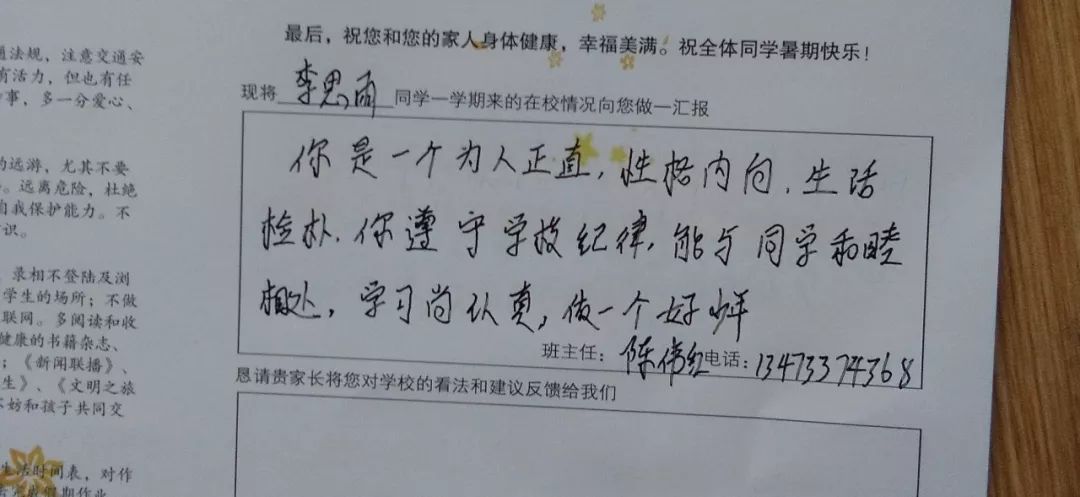 通法规，注意交通安
有活力，但也有任
事，多一分爱心、
的远游，尤其不要
。远离危险，杜绝
自我保护能力。不
识。
录相不登陆及浏
学生的场所；不做
联网。多阅读和收
健康的书籍杂志、
；《新闻联播》、
生》、《文明之旅
不妨和孩子共同交
生活时间表，对作
最后，祝您和您的家人身体健康，幸福美满。祝全体同学暑期快乐！
现将李思雨同学一学期来的在校情况向您做一汇报
你是一个为人正直，性格内向，生活
检朴，你遵守学校纪律，能与同学和睦
相处，学习尚认真，做一个好少年
班主任：陈伟红电话：13473374368
恳请贵家长将您对学校的看法和建议反馈给我们